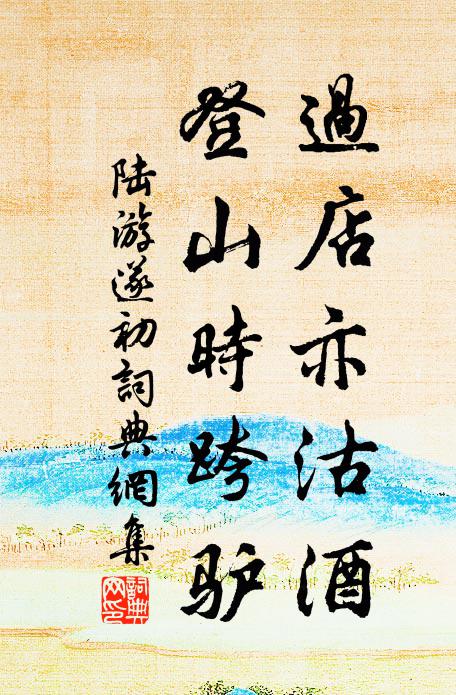 過店亦沽酒
登山時跨驴
陆游遂初詞典網集
詞典網印